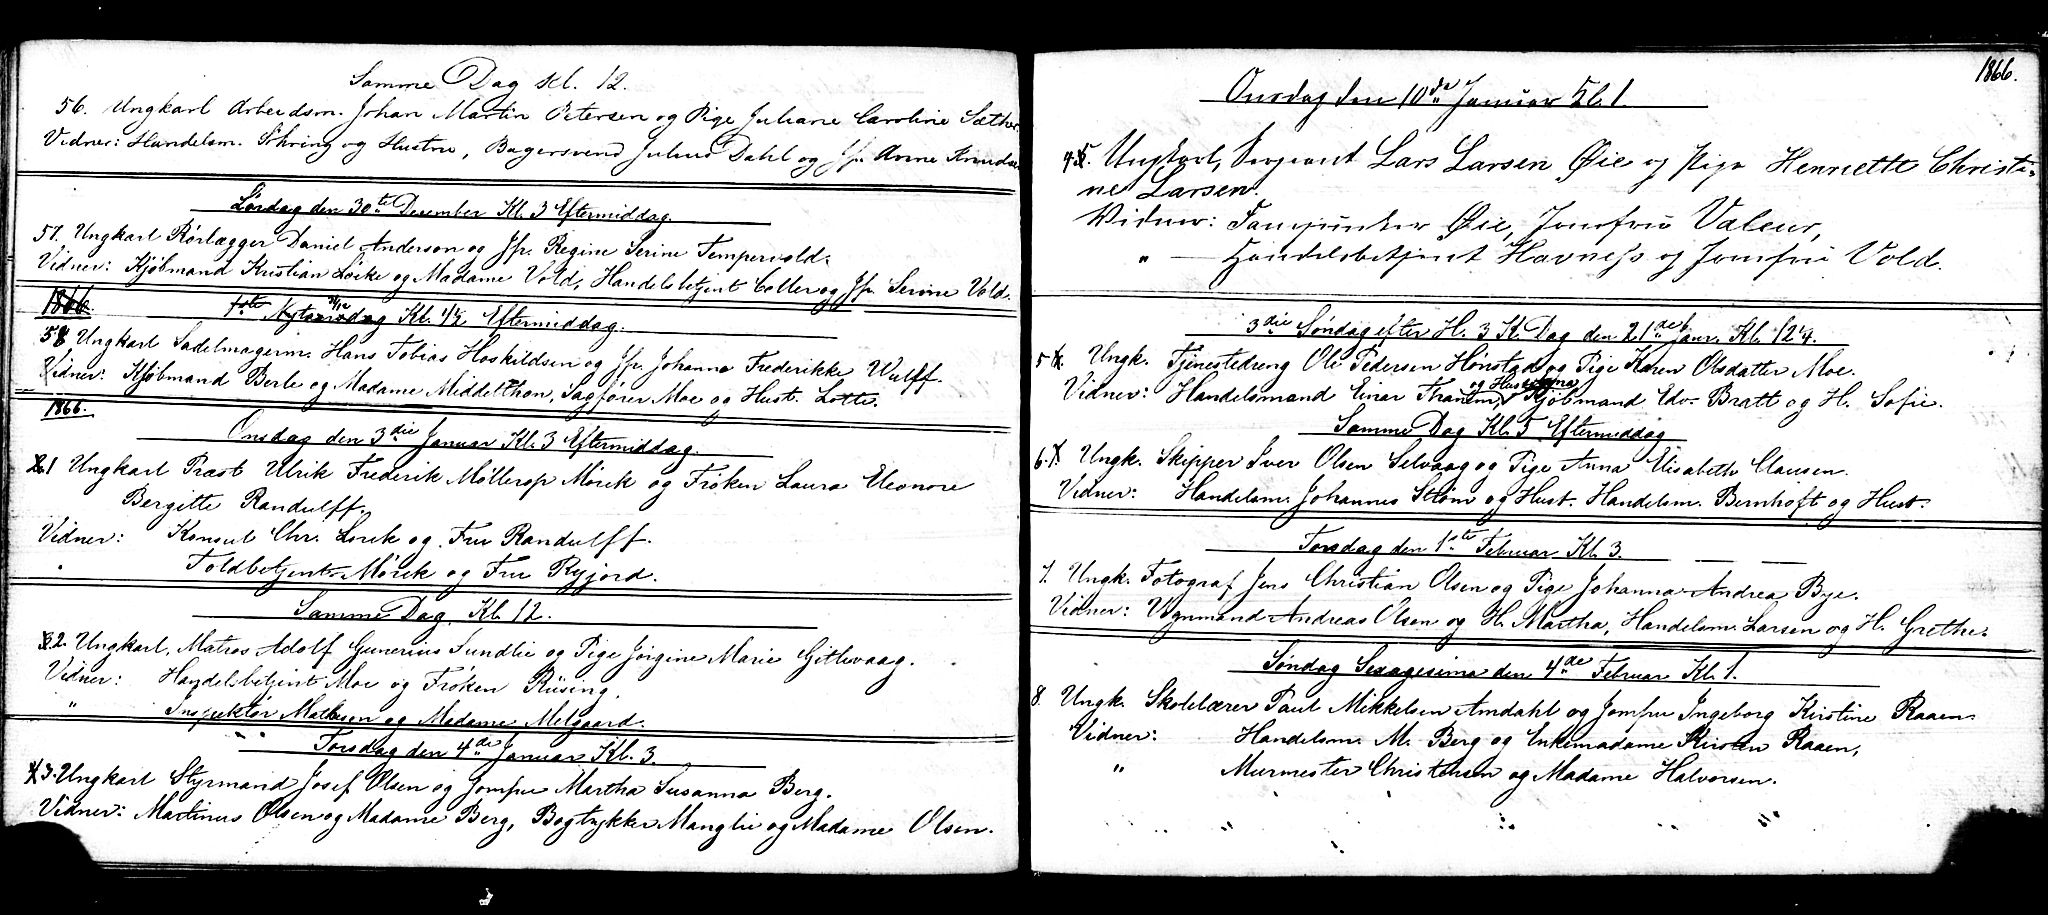 Samme Dag Kl. 12.
56. Ungkarl Arbeidsm. Johan Martin Petersen og Pige Juliane Caroline Sæther.
Vidner: Handelsm. og Hustru, Bagersvend Julius Dahl og Jfr. Anne
Lördag den 30te December Kl. 3 Eftermiddag.
57. Ungkarl Rörlægger Daniel Anderson og Jfr. Regine Serine Tempervold.
Vidner: Kjöbmand Kristian Löcke og Madame Vold, Handelsbetjent Coller og Jfr. Serine Vold.
1866
Kl. 4½ Eftermiddag.
58 Ungkarl Sadelmagerm. Hans Tobias Hoskildsen og Jfr. Johanna Frederikke Wulff.
Vidner: Kjöbmand Berle og Madame Middelthon, Sagförer Moe og Hust. Lotte.
1866.
Onsdag den 3die Januar Kl. 3 Eftermiddag.
1 Ungkarl Præst Ulrik Frederik Möllerop Mörck og Fröken Laura Eleonore
Bergitte Randulff.
Vidner: Konsul Chr. og Fru Randulff.
Toldbetjent Mörck og Fru Ryjord.
Samme Dag. Kl. 12.
2. Ungkarl, Matros Adolf Gunerius Sundlie og Pige Jörgine Marie Gittevaag.
Vidner: Handelsbetjent Moe og Fröken Rüsing.
" Inspektör Mathesen og Madame Melgaard.
Torsdag den 4de Januar Kl. 3.
3. Ungkarl Styrmand Josef Olsen og Jomfru Martha Susanna Berg.
Vidner: Martinus Olsen og Madame Berg, Bogtrykker Manglie og Madame Olsen.
1866.
Onsdag den 10de Januar Kl. 1.
4. Ungkarl, Sergeant Lars Larsen Øie og Pige Henriette Christi-
ne Larsen.
Vidner: Øie, Jomfru Valeur,
" — Handelsbetjent Havneſs og Jomfru Vold.
3die Söndag efter H. 3 K. Dag den 21de Janr. Kl. 12¼.
5 Ungk. Tjenestedreng Ole Pedersen Hönstad og Pige Karen Olsdatter Moe.
og Hustru
Vidner: Handelsmand Einar Thranm, Kjöbmand Edv. Bratt og H. Sofie.
Samme Dag Kl. 5 Eftermiddag
6. Ungk. Skipper Iver Olsen Selvaag og Pige Anna Elisabeth Clausen.
Vidner: Handelsm. Johannes Ström og Hust. Handelsm. Bernhoft og Hust.
Torsdag den 1ste Februar Kl. 3.
7. Ungk. Fotograf Jens Christian Olsen og Pige Johanna Andrea Bye.
Vidner: Vognmand Andreas Olsen og H. Martha, Handelsm. Larsen og H. Grethe.
Söndag Sexagesima den 4de Februar Kl. 1.
8. Ungk. Skolelærer Paul Mikkelsen Amdahl og Jomfru Ingeborg Kirstine Raaen
Vidner: Handelsm. M. Berg og Enkemadame Kirsten Raaen,
" Murmester Christensen og Madame Halvorsen.